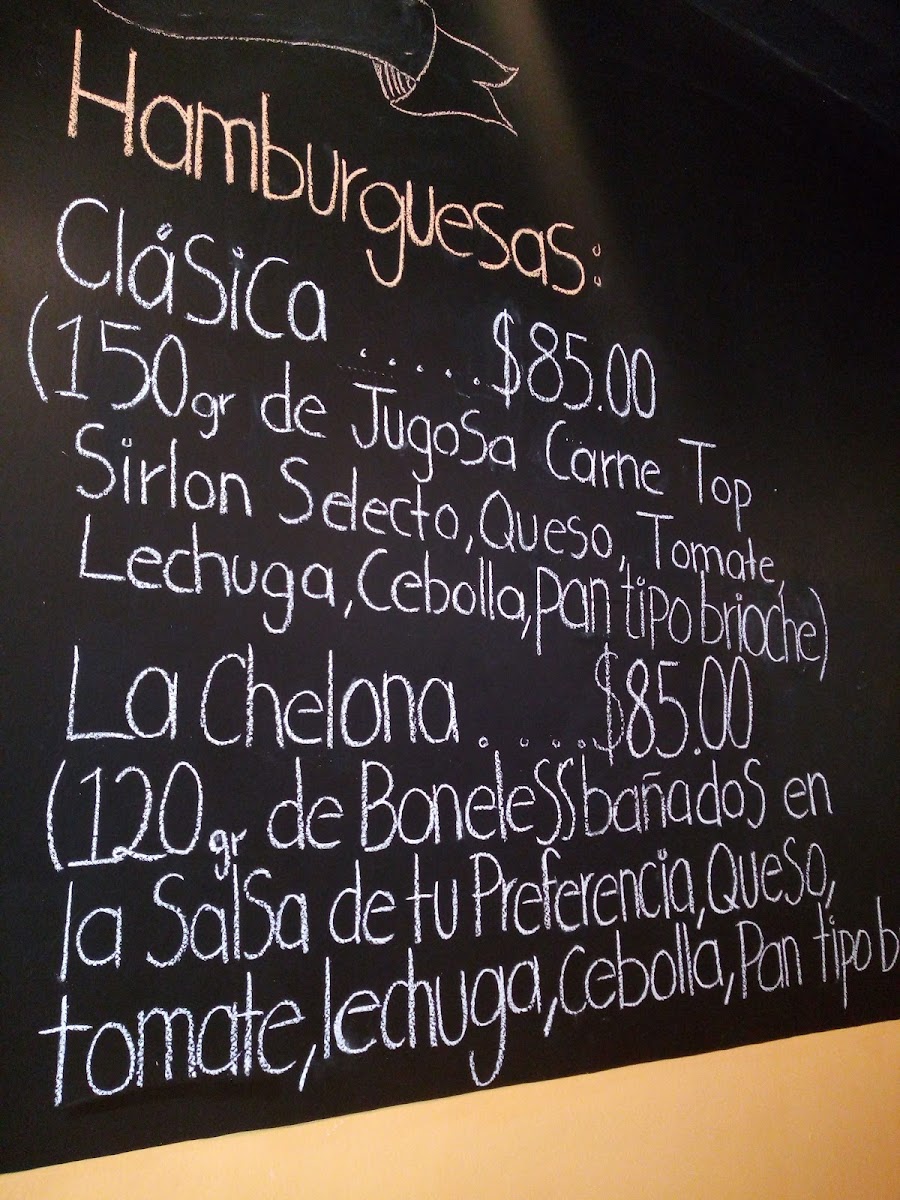 Hamburguesas:
Clásica ..... $85.00
(150gr de Jugosa Carne Top
Sirlon Selecto, Queso, Tomate,
Lechuga, Cebolla, pan tipo brioche)
La Chelona ..... $85.00
(120gr de Boneless bañados en
la Salsa de tu Preferencia, Queso,
tomate, lechuga, Cebolla, Pan tipo b